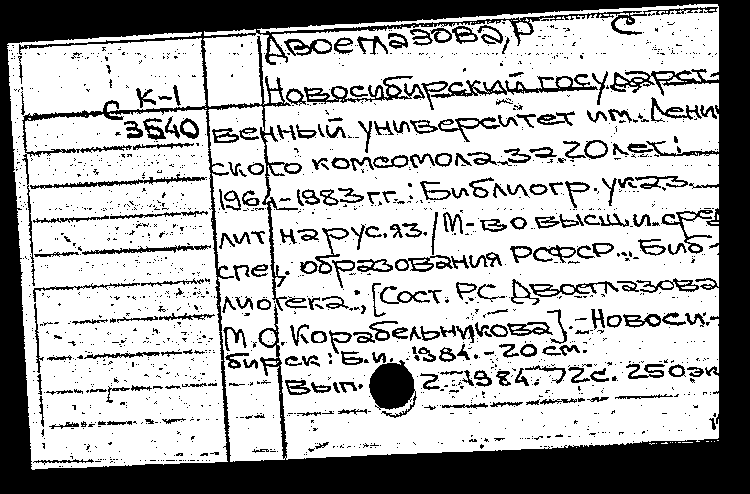 Двоеглазова, Р С
Новосибирский государст-
С К-1
3540
венный университет им. Лени
ского комсомола за 20 лет:
1964-1983 гг.: Библиогр. указ.
лит на рус. яз. / М-во высш. и сред
спец. образования РСФСР.. Биб-
лиотека; [Сост. Р.С. Двоеглазова
М.О. Корабельникова]. - Новоси-
бирск: Б.и., 1984. - 20 см.
Вып. 2 1984. 72 с. 250 эк